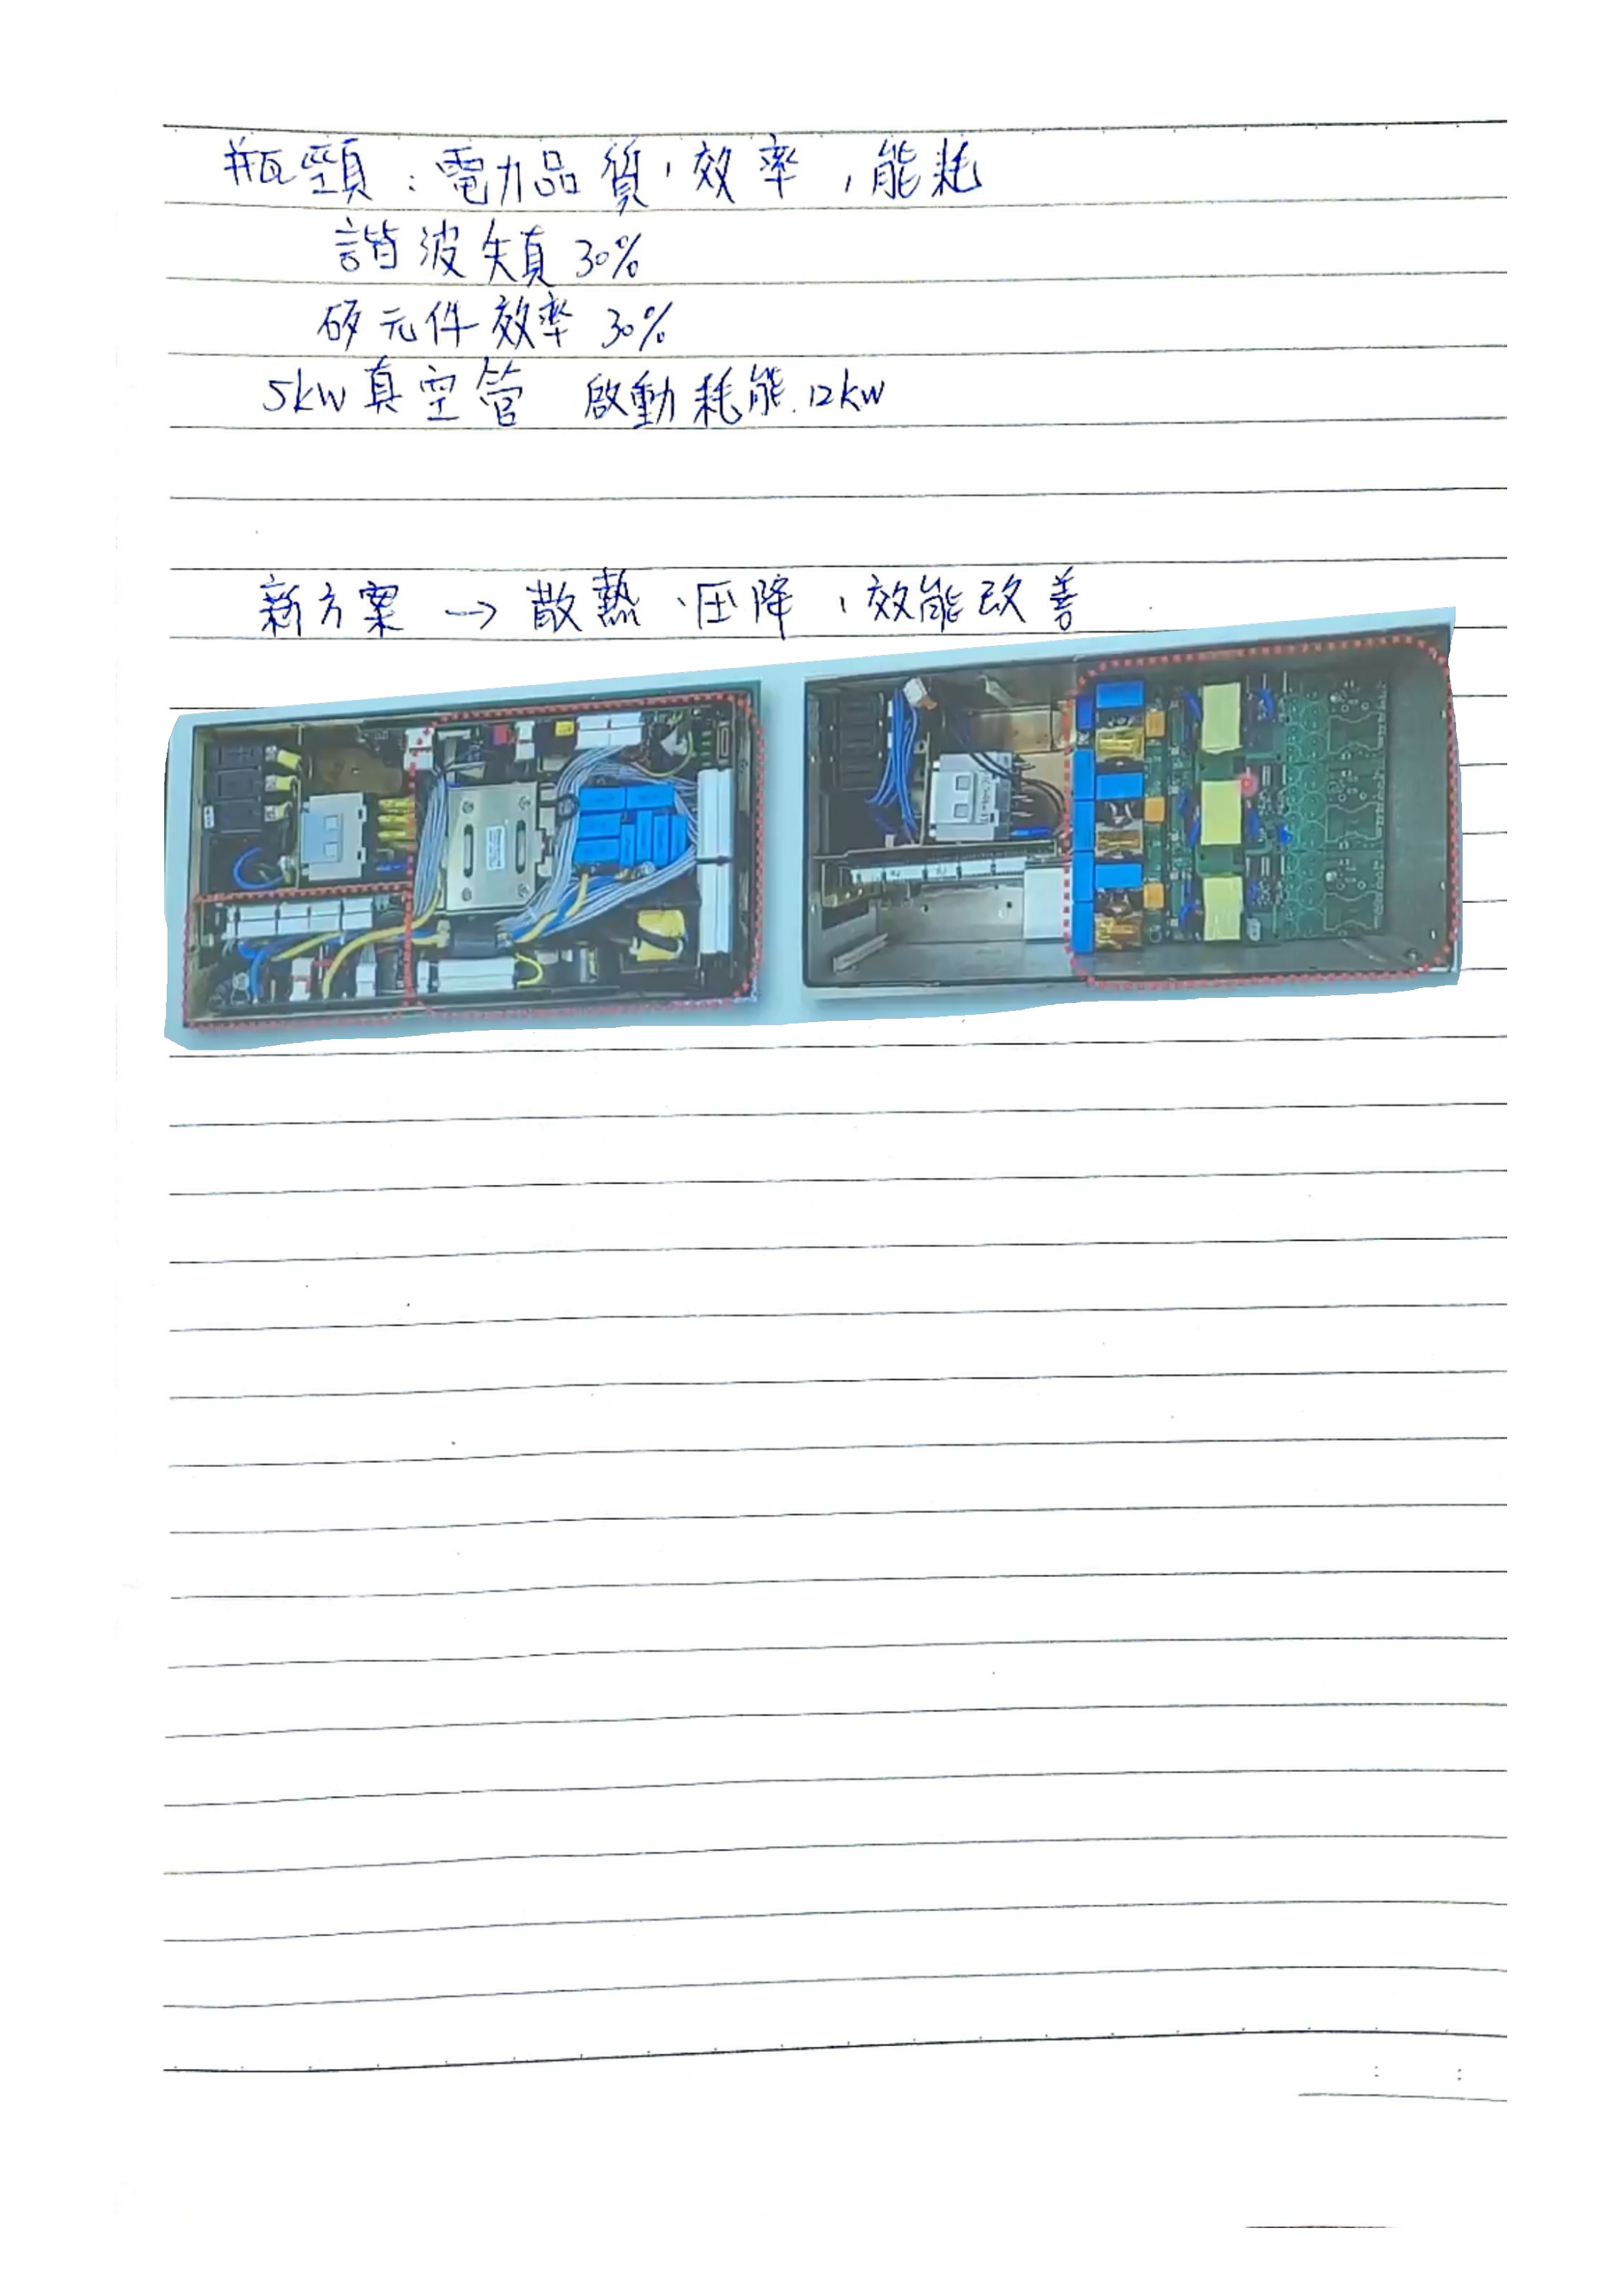 瓶頸：電力品質，效率，能耗
諧波失真 30%
矽元件效率 30%
5kW真空管 啟動耗能.12kW
新方案 → 散熱、压降，效能改善